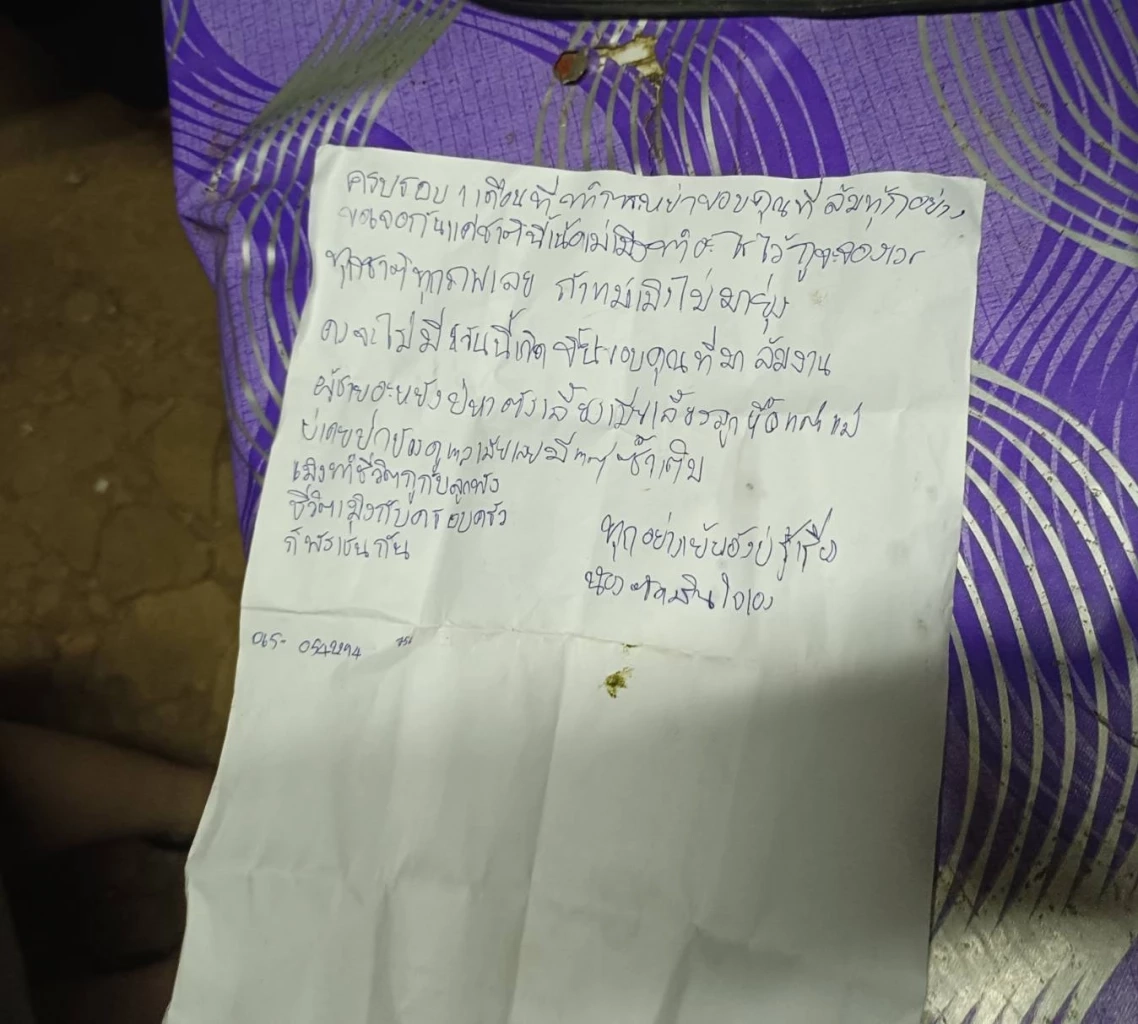 ครบรอบ 1 เดือนที่ทำการหย่าขอบคุณที่ล้มทุกอย่าง
ขอเจอกันแค่ชาตินี้เน้อแม่มึงทำอะไรไว้กูจะจองเวร
ทุกชาติทุกภพเลย ถ้าแม่มึงไม่มายุ่ง
คงจะไม่มีวันนี้เกิดขึ้นขอบคุณที่มาล้มงาน
ผู้ชายอะหยังปะหาตังเลี้ยงเมียเลี้ยงลูก
บ่เคยปกป้องดูแลเมียเลยมีแต่ซ้ำเติม
เมิงทำชีวิตกูกับลูกพัง
ชีวิตเมิงกับครอบครัว
ก็พังเช่นกัน
ทุกอย่างเย็นยังบ่ฮู้เรื่อง
น้องตัดสินใจเอง
065-